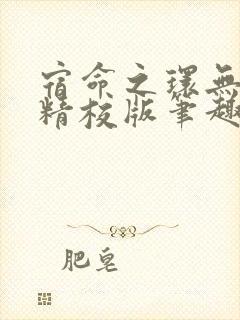 宿命之環無
精校版筆趣
肥皂